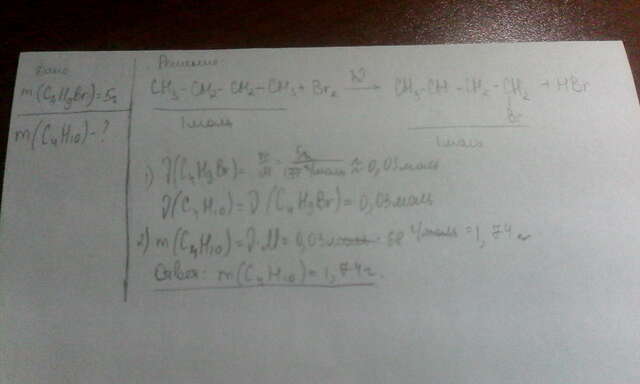 Дано:
m(C4H9Br)=5г
m(C4H10)-?
Решение:
CH3-CH2-CH2-CH3+Br2 → CH3-CH-CH2-CH2 +HBr
Br
1моль
1моль
1) ν(C4H9Br)= m/M = 5г/137 г/моль ≈ 0,03моль
ν(C4H10)=ν(C4H9Br)=0,03моль
2) m(C4H10)=ν·M=0,03моль·58 г/моль=1,74 г
Ответ: m(C4H10)=1,74г.